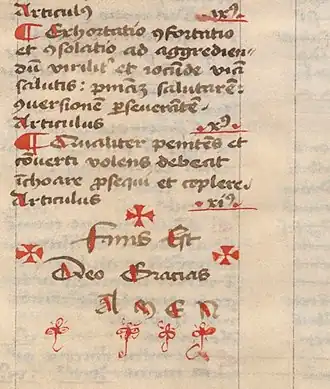 Articulus ixꝰ
¶ Exhortatio ꝯfortatio
et ꝯsolatio ad aggredien-
dū virilitʼ et iocūde viā
salutis: pniam salutarem:
ꝯuersionem ꝑseuerātem.
Articulus xꝰ
¶ Qualiter penitēs et
cōuerti volens debeat
īchoare ꝓsequi et cōplere.
Articulus xiꝰ
Finis Est
Deo Gracias
A M E N